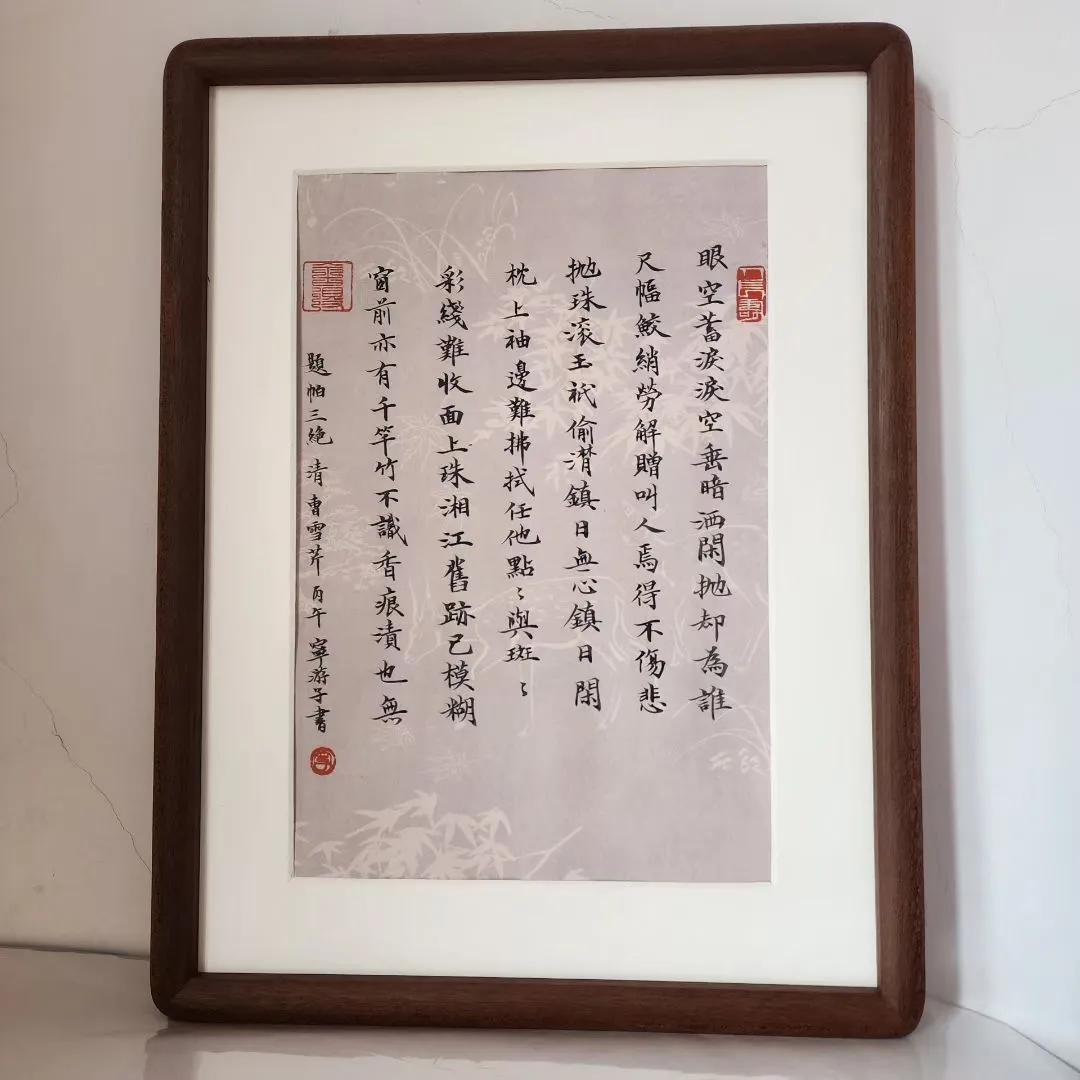 眼空蓄淚淚空垂暗洒閑抛却為誰
尺幅鮫綃勞解贈叫人焉得不傷悲
抛珠滚玉衹偷潸鎮日無心鎮日閑
枕上袖邊難拂拭任他點〻與斑〻
彩綫難收面上珠湘江舊跡已模糊
窗前亦有千竿竹不識香痕漬也無
題帕三絶 清 曹雪芹 丙午 寧游子書